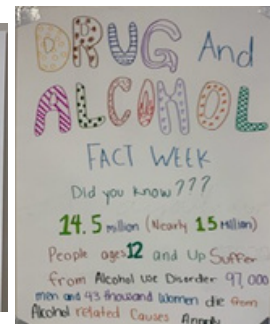 DRUG And
ALCOHOL
FACT WEEK
Did you know???
14.5 million (Nearly 15 Million)
People ages 12 and Up Suffer
from Alcohol use Disorder 97,000
men and 43 thousand Women die from
Alcohol related Causes Annually